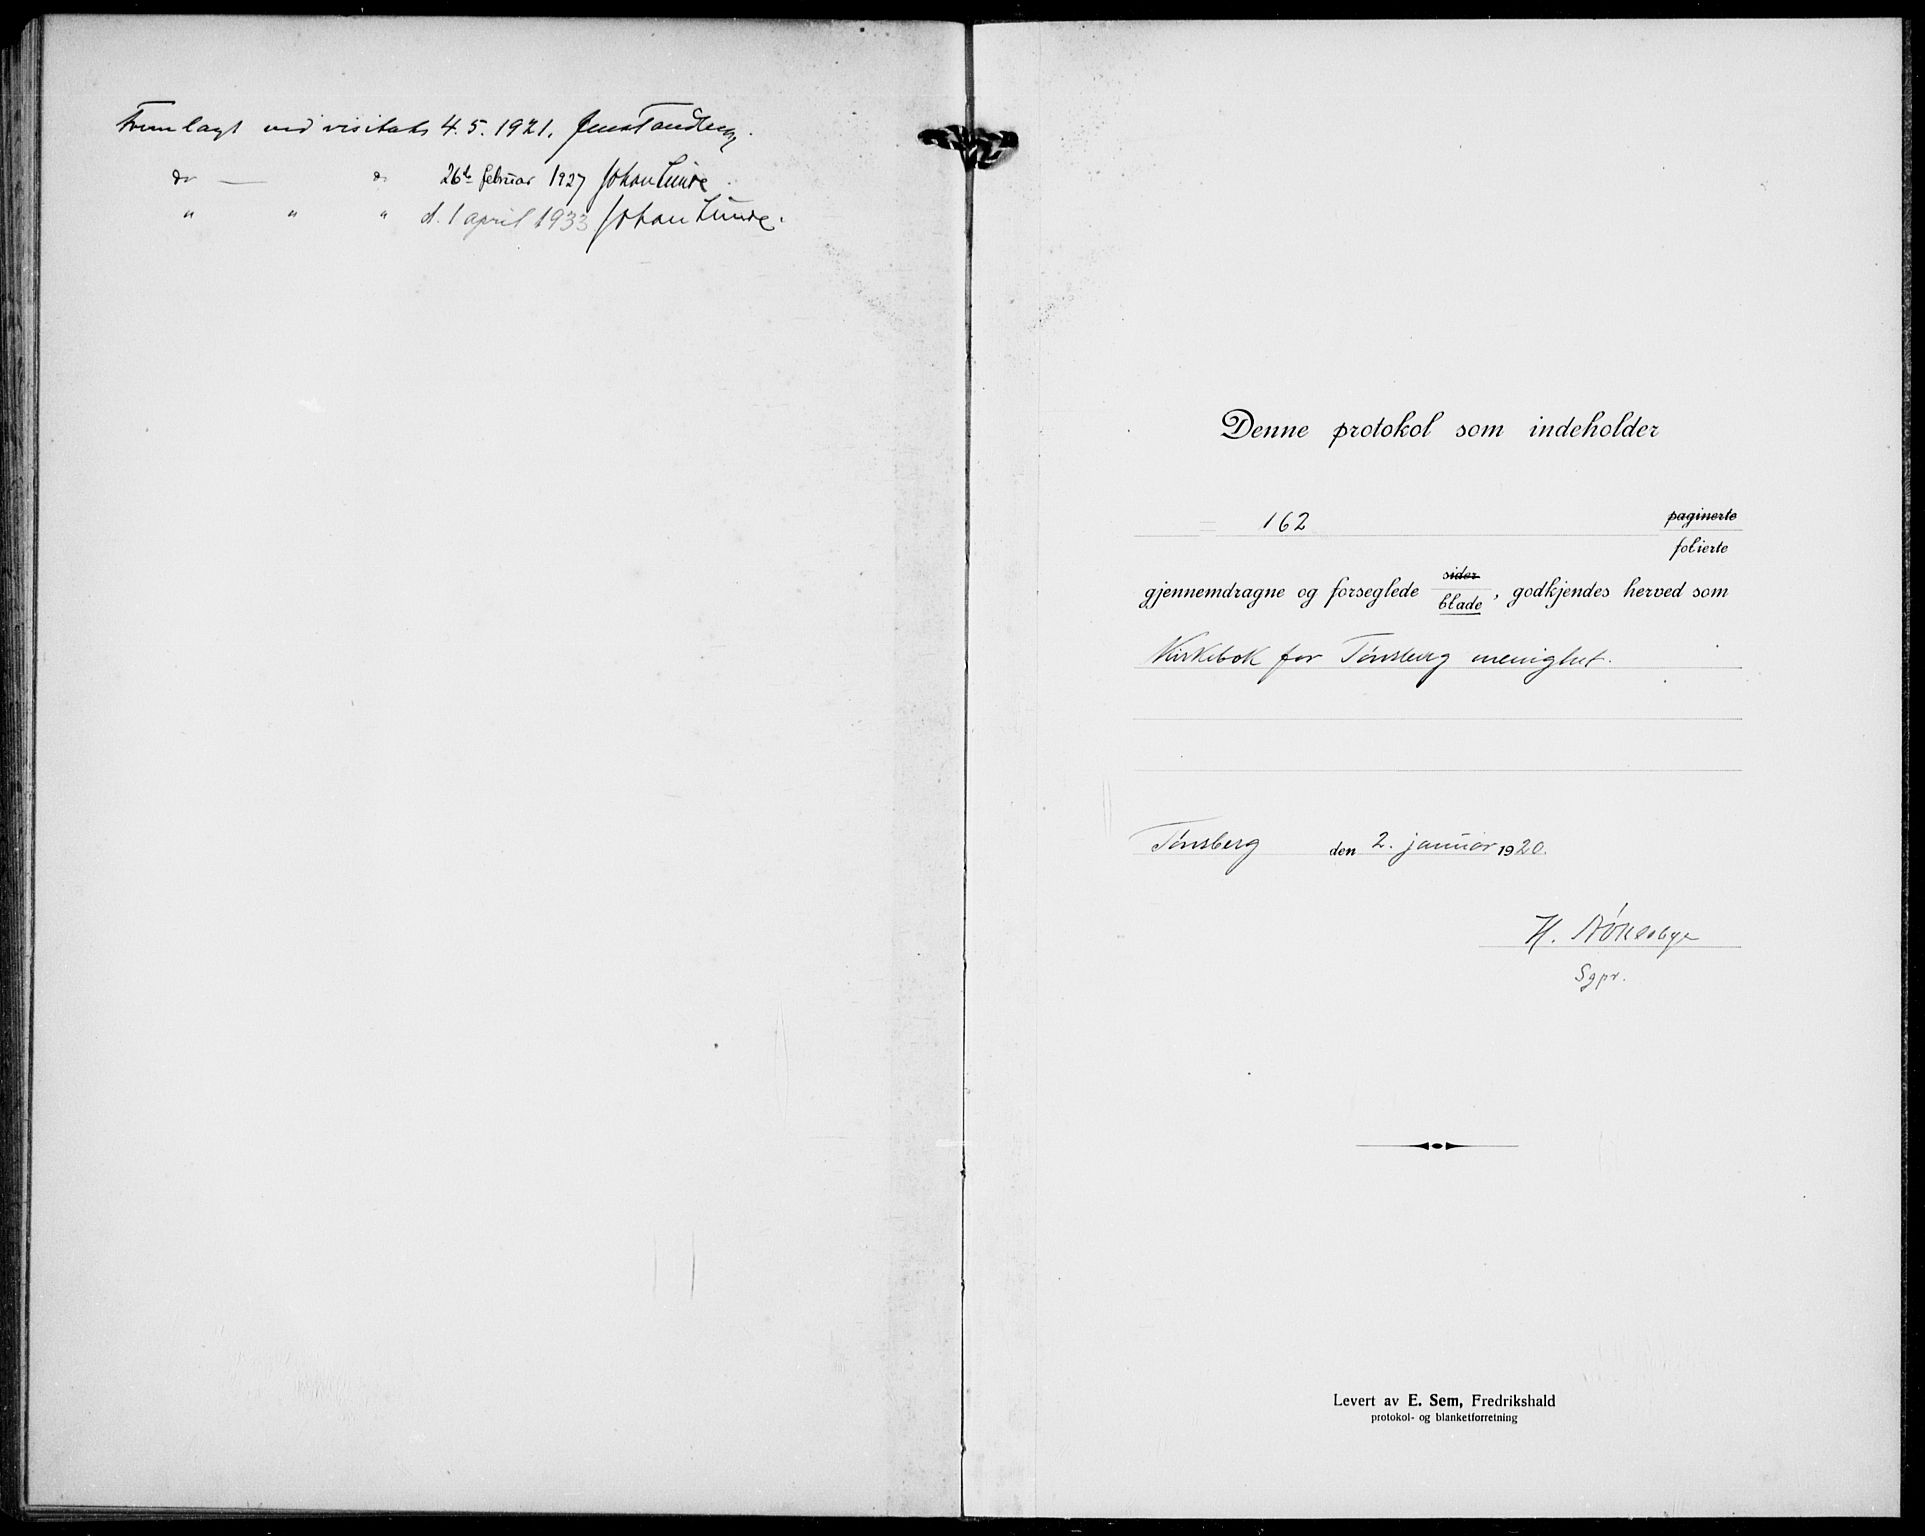 Fremlagt ved visitats 4.5.1921. Jens Tandberg.
do — do 26de februar 1927 Johan Lunde.
" " " d. 1 april 1933 Johan Lunde.
Denne protokol som indeholder
= 162 paginerte
folierte
gjennemdragne og forseglede sider
blade, godkjendes herved som
Kirkebok for Tønsberg menighet.
Tønsberg den 2. januar 1920.
H.
Sgpr.
Levert av E. Sem, Fredrikshald
protokol- og blanketforretning